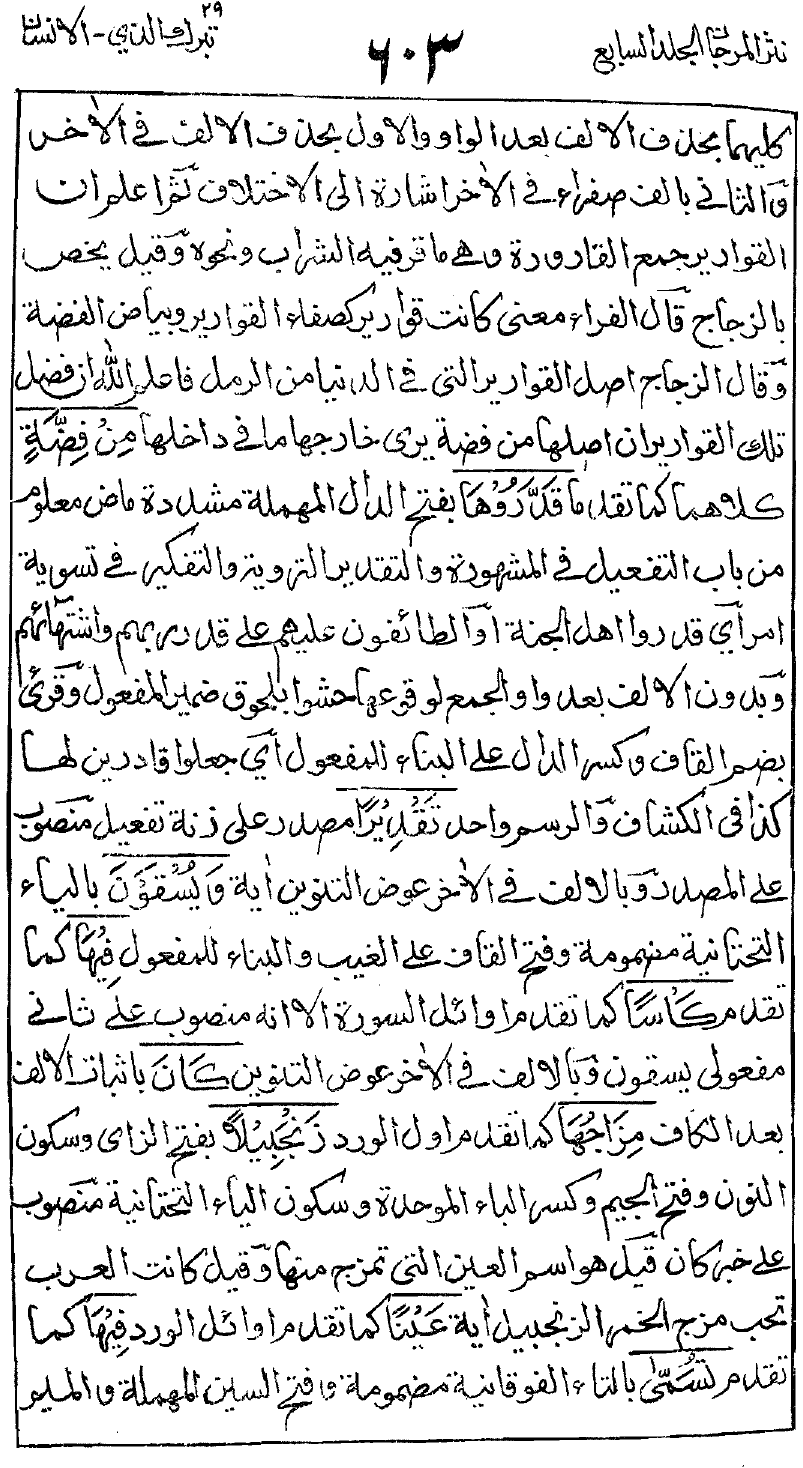 نثر المرجان الجلد السابع
٦٠٣
تبرك الذي ٢٩ - الانسان
كليهما بحذف الالف بعد الواو والاول بحذف الالف في الاٰخر
وَالثاني بالف صفراء في الاٰخر اشارة الى الاختلاف ثمّ اعلم ان
القوارير جمع القارورة وهي ما قر فيه الشراب ونحوه وَقيل يخص
بالزجاج قَال الفراء معنى كانت قوارير كصفاء القوارير وبياض الفضة
وَقال الزجاج اصل القوارير التي في الدنيا من الرمل فاعلم الله ان فضل
تلك القوارير ان اصلها من فضة يرى خارجها ما في داخلها مِنْ فِضَّةٍ
كلاهما كما تقدم قَدَّرُوْهَا بفتح الدال المهملة مشددة ماض معلوم
من باب التفعيل في المشهورة والتقدير التروية والتفكير في تسوية
امر اَي قدروا اهل الجنة او الطائفون عليهم على قدر ريهم واشتهائهم
وَبدون الالف بعد واو الجمع لوقوعها حشوا بلحوق ضمير المفعول وَقرئ
بضم القاف وكسر الدال على البناء للمفعول اَي جعلوا قادرين لها
كذا في الكشاف وَالرسم واحد تَقْدِيْرًا مصدر على زنة تفعيل منصوب
على المصدر وَبالالف في الاٰخر عوض التنوين اٰية وَيُسْقَوْنَ بالياء
التحتانية مضمومة وفتح القاف على الغيب والبناء للمفعول فِيْهَا كما
تقدم كَاْسًا كما تقدم اوائل السورة الا انه منصوب على ثاني
مفعولي يسقون وَبالالف في الاٰخر عوض التنوين كَانَ باثبات الالف
بعد الكاف مِزَاجُهَا كما تقدم اول الورد زَنْجَبِيْلًا بفتح الزاى وسكون
النون وفتح الجيم وكسر الباء الموحدة وسكون الياء التحتانية منصوب
على خبر كان قيل هو اسم العين التي تمزج منها وَقيل كانت العرب
تحب مزج الخمر الزنجبيل اٰية عَيْنًا كما تقدم اوائل الورد فِيْهَا كما
تقدم تُسَمّٰى بالتاء الفوقانية مضمومة وفتح السين المهملة والميم